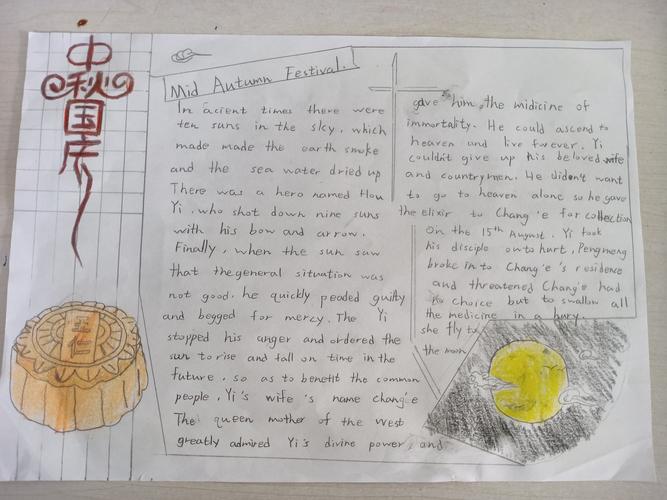 中秋国庆
Mid Autumn Festival.
In acient times there were
ten suns in the sky, which
made made the earth smoke
and the sea water dried up
There was a hero named Hou
Yi, who shot down nine suns
with his bow and arrow.
Finally, when the sun saw
that the general situation was
not good, he quickly peaded guilty
and begged for mercy. The Yi
stopped his anger and ordered the
sun to rise and fall on time in the
future, so as to benefit the common
people, Yi's wife 's name chang'e
The queen mother of the west
greatly admired Yi's divine power, and
gave him the midicine of
immortality. He could ascend to
heaven and live forever. Yi
couldn't give up his beloved wife
and countrymen. He diden't want
to go to heaven alone so he gave
the elixir to Chang 'e for collection
On the 15th August. Yi took
his disciple out to hurt, Pengmeng
broke in to Chang'e 's residence
and threatened Chang'e had
no choice but to swallow all
the medicine in a hury.
she fly to
the moon
五仁